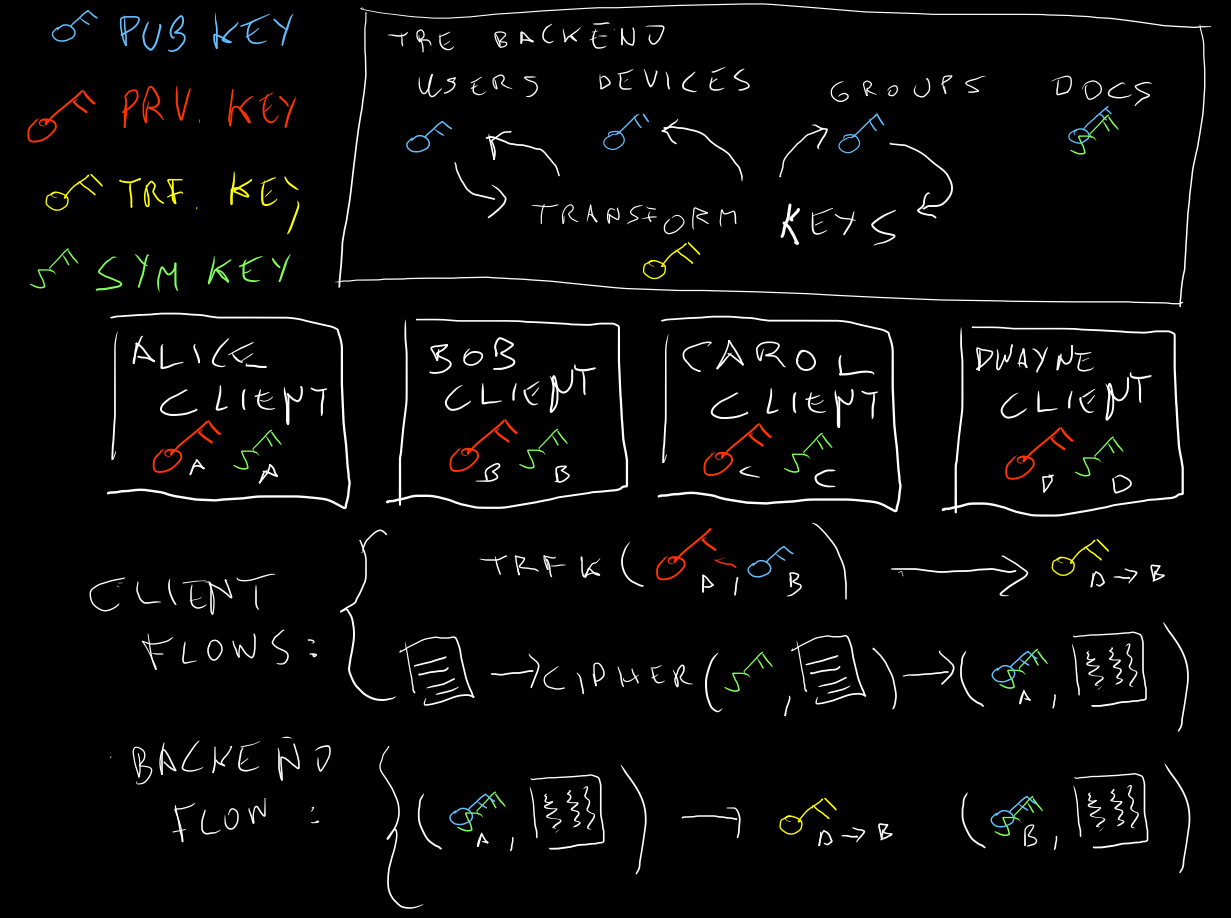 PUB KEY
PRV. KEY
TRF. KEY
SYM KEY
TRE BACKEND
USERS DEVICES GROUPS DOCS
TRANSFORM KEYS
ALICE CLIENT
A A
BOB CLIENT
B B
CAROL CLIENT
C C
DWAYNE CLIENT
D D
CLIENT FLOWS:
TRFK ( A , B ) → A → B
→ CIPHER ( , ) → ( A , )
BACKEND FLOW:
( A , ) → A → B ( B , )